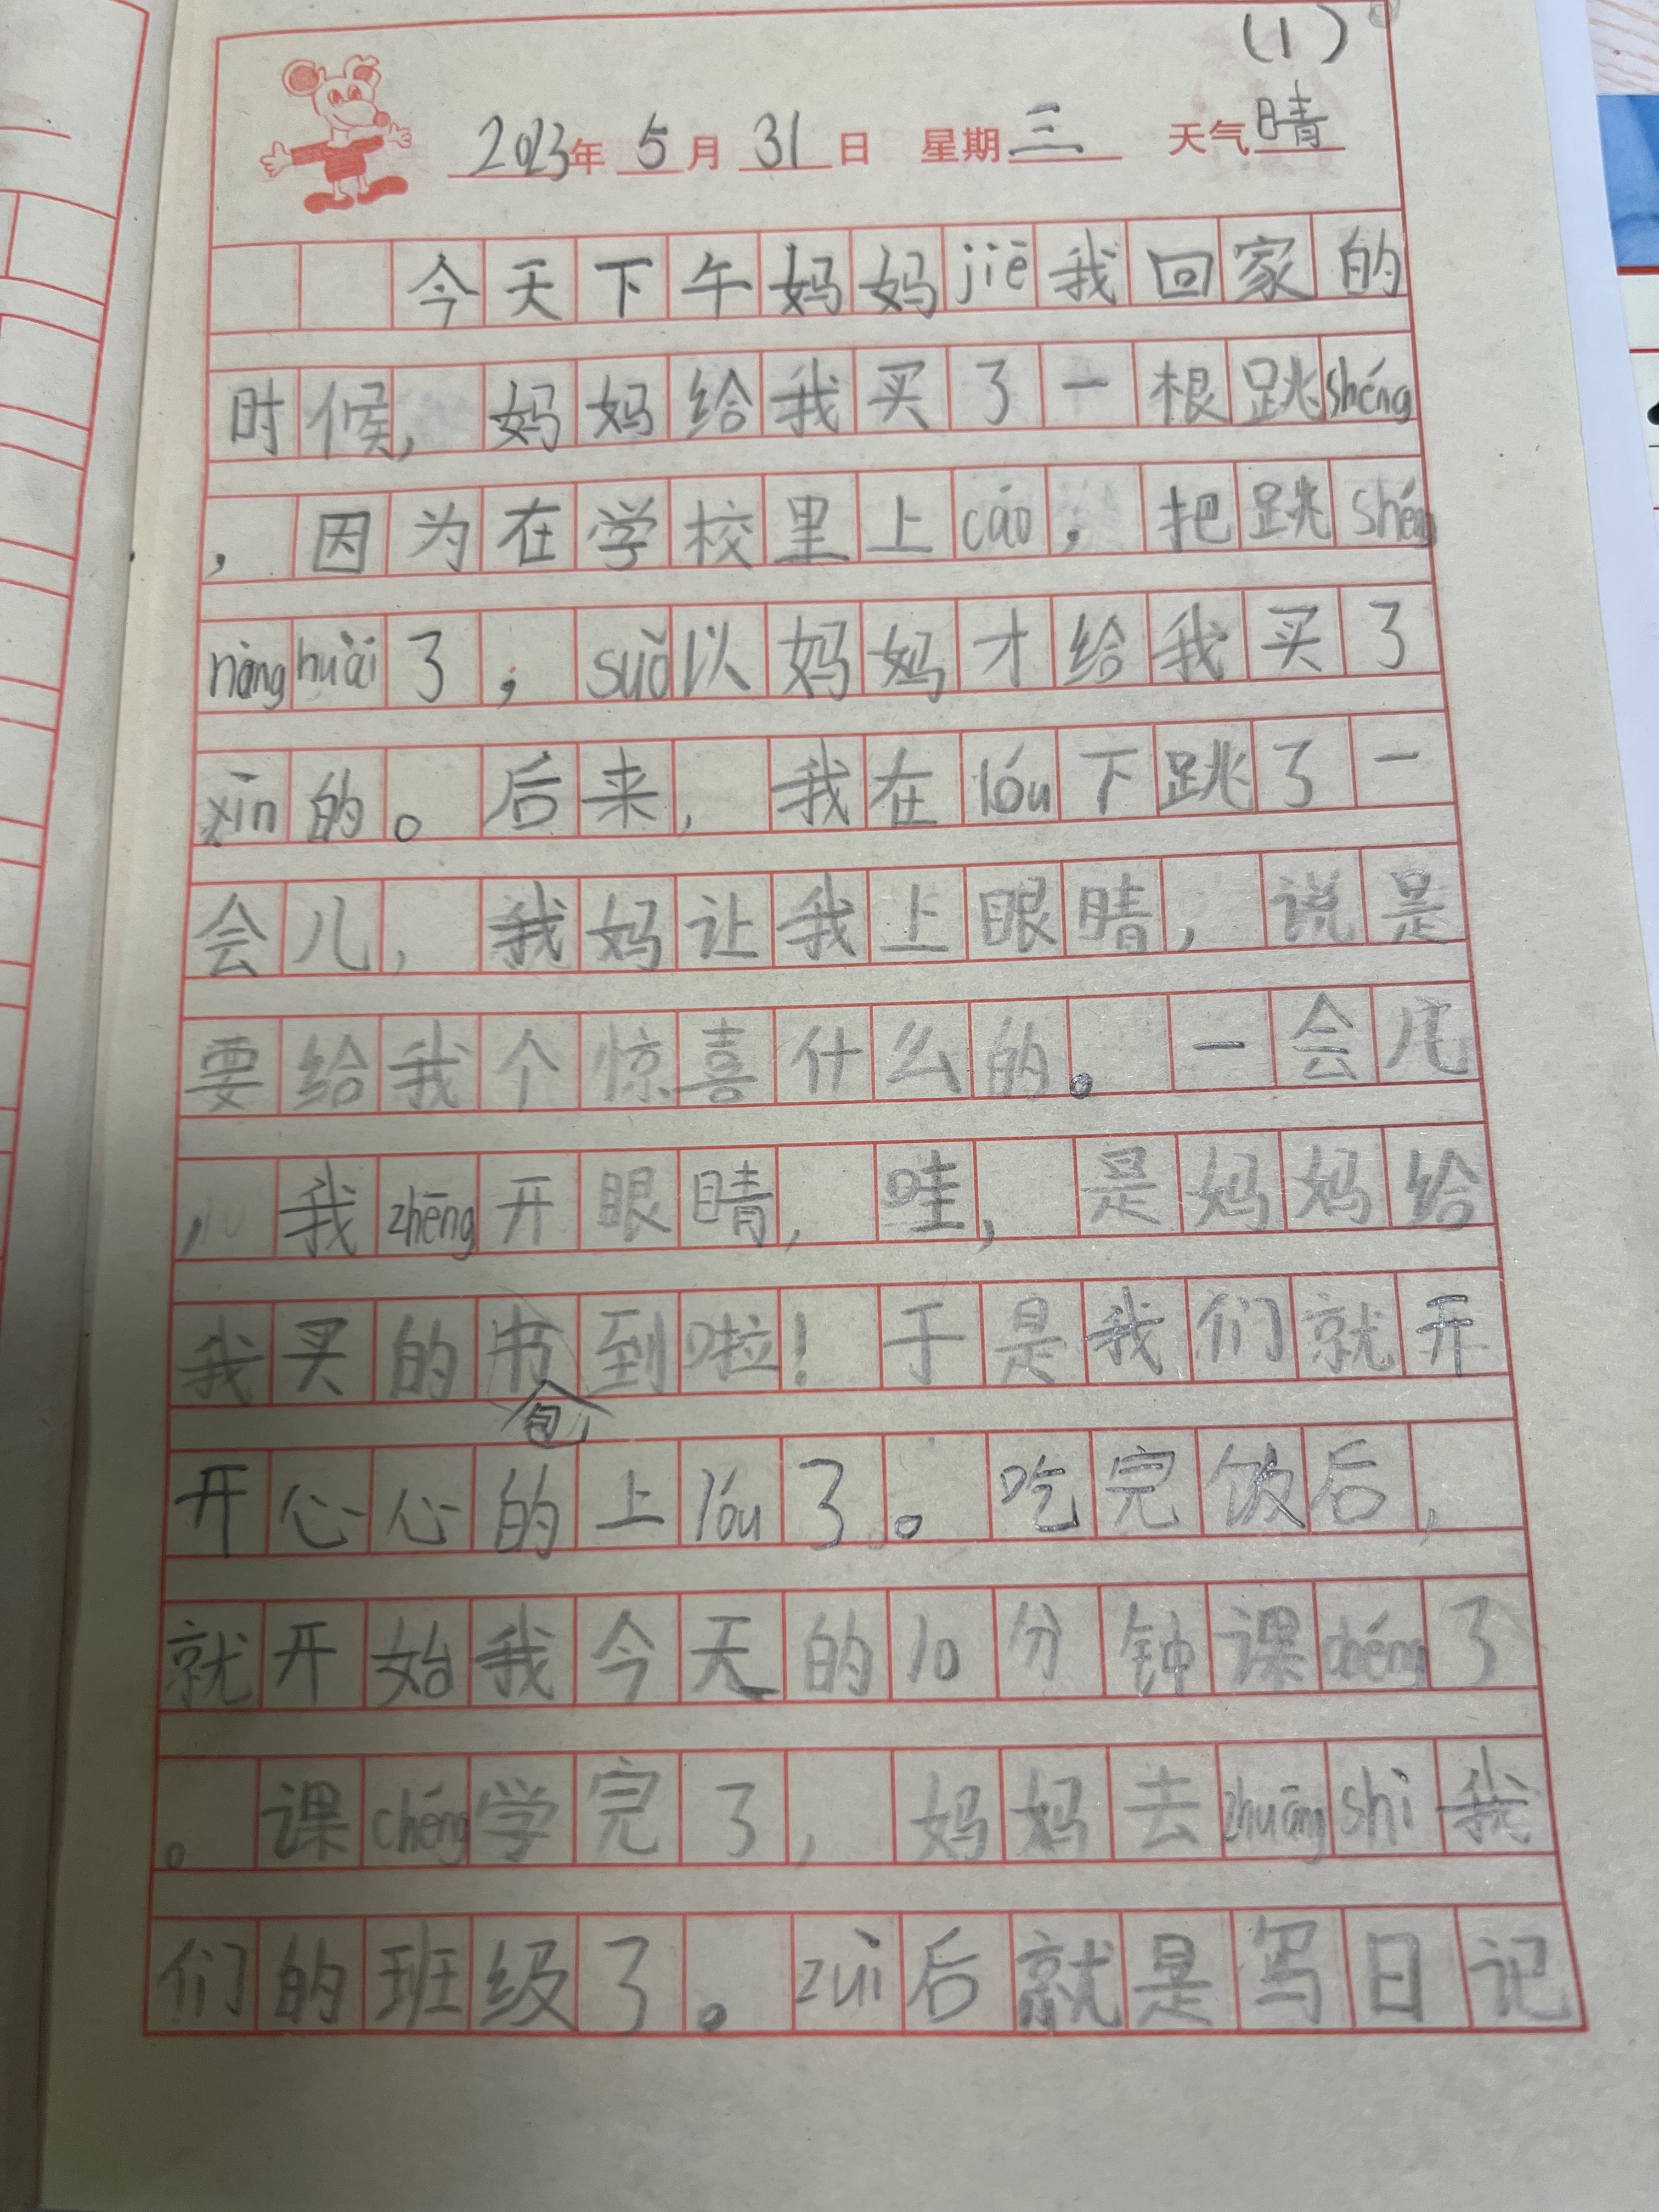 (1)
2023年 5月 31日 星期三 天气晴
今天下午妈妈jiē我回家的
时候,妈妈给我买了一根跳shéng
,因为在学校里上cáo,把跳shéng
nòng huài了,suǒ以妈妈才给我买了
xīn的。后来,我在lóu下跳了一
会儿,我妈让我上眼睛,说是
要给我个惊喜什么的。一会儿
,我zhēng开眼睛,哇,是妈妈给
我买的书到啦!于是我们就开
包
开心心的上lóu了。吃完饭后,
就开始我今天的10分钟课chéng了
。课chéng学完了,妈妈去zhuāng shì我
们的班级了。zuì后就是写日记